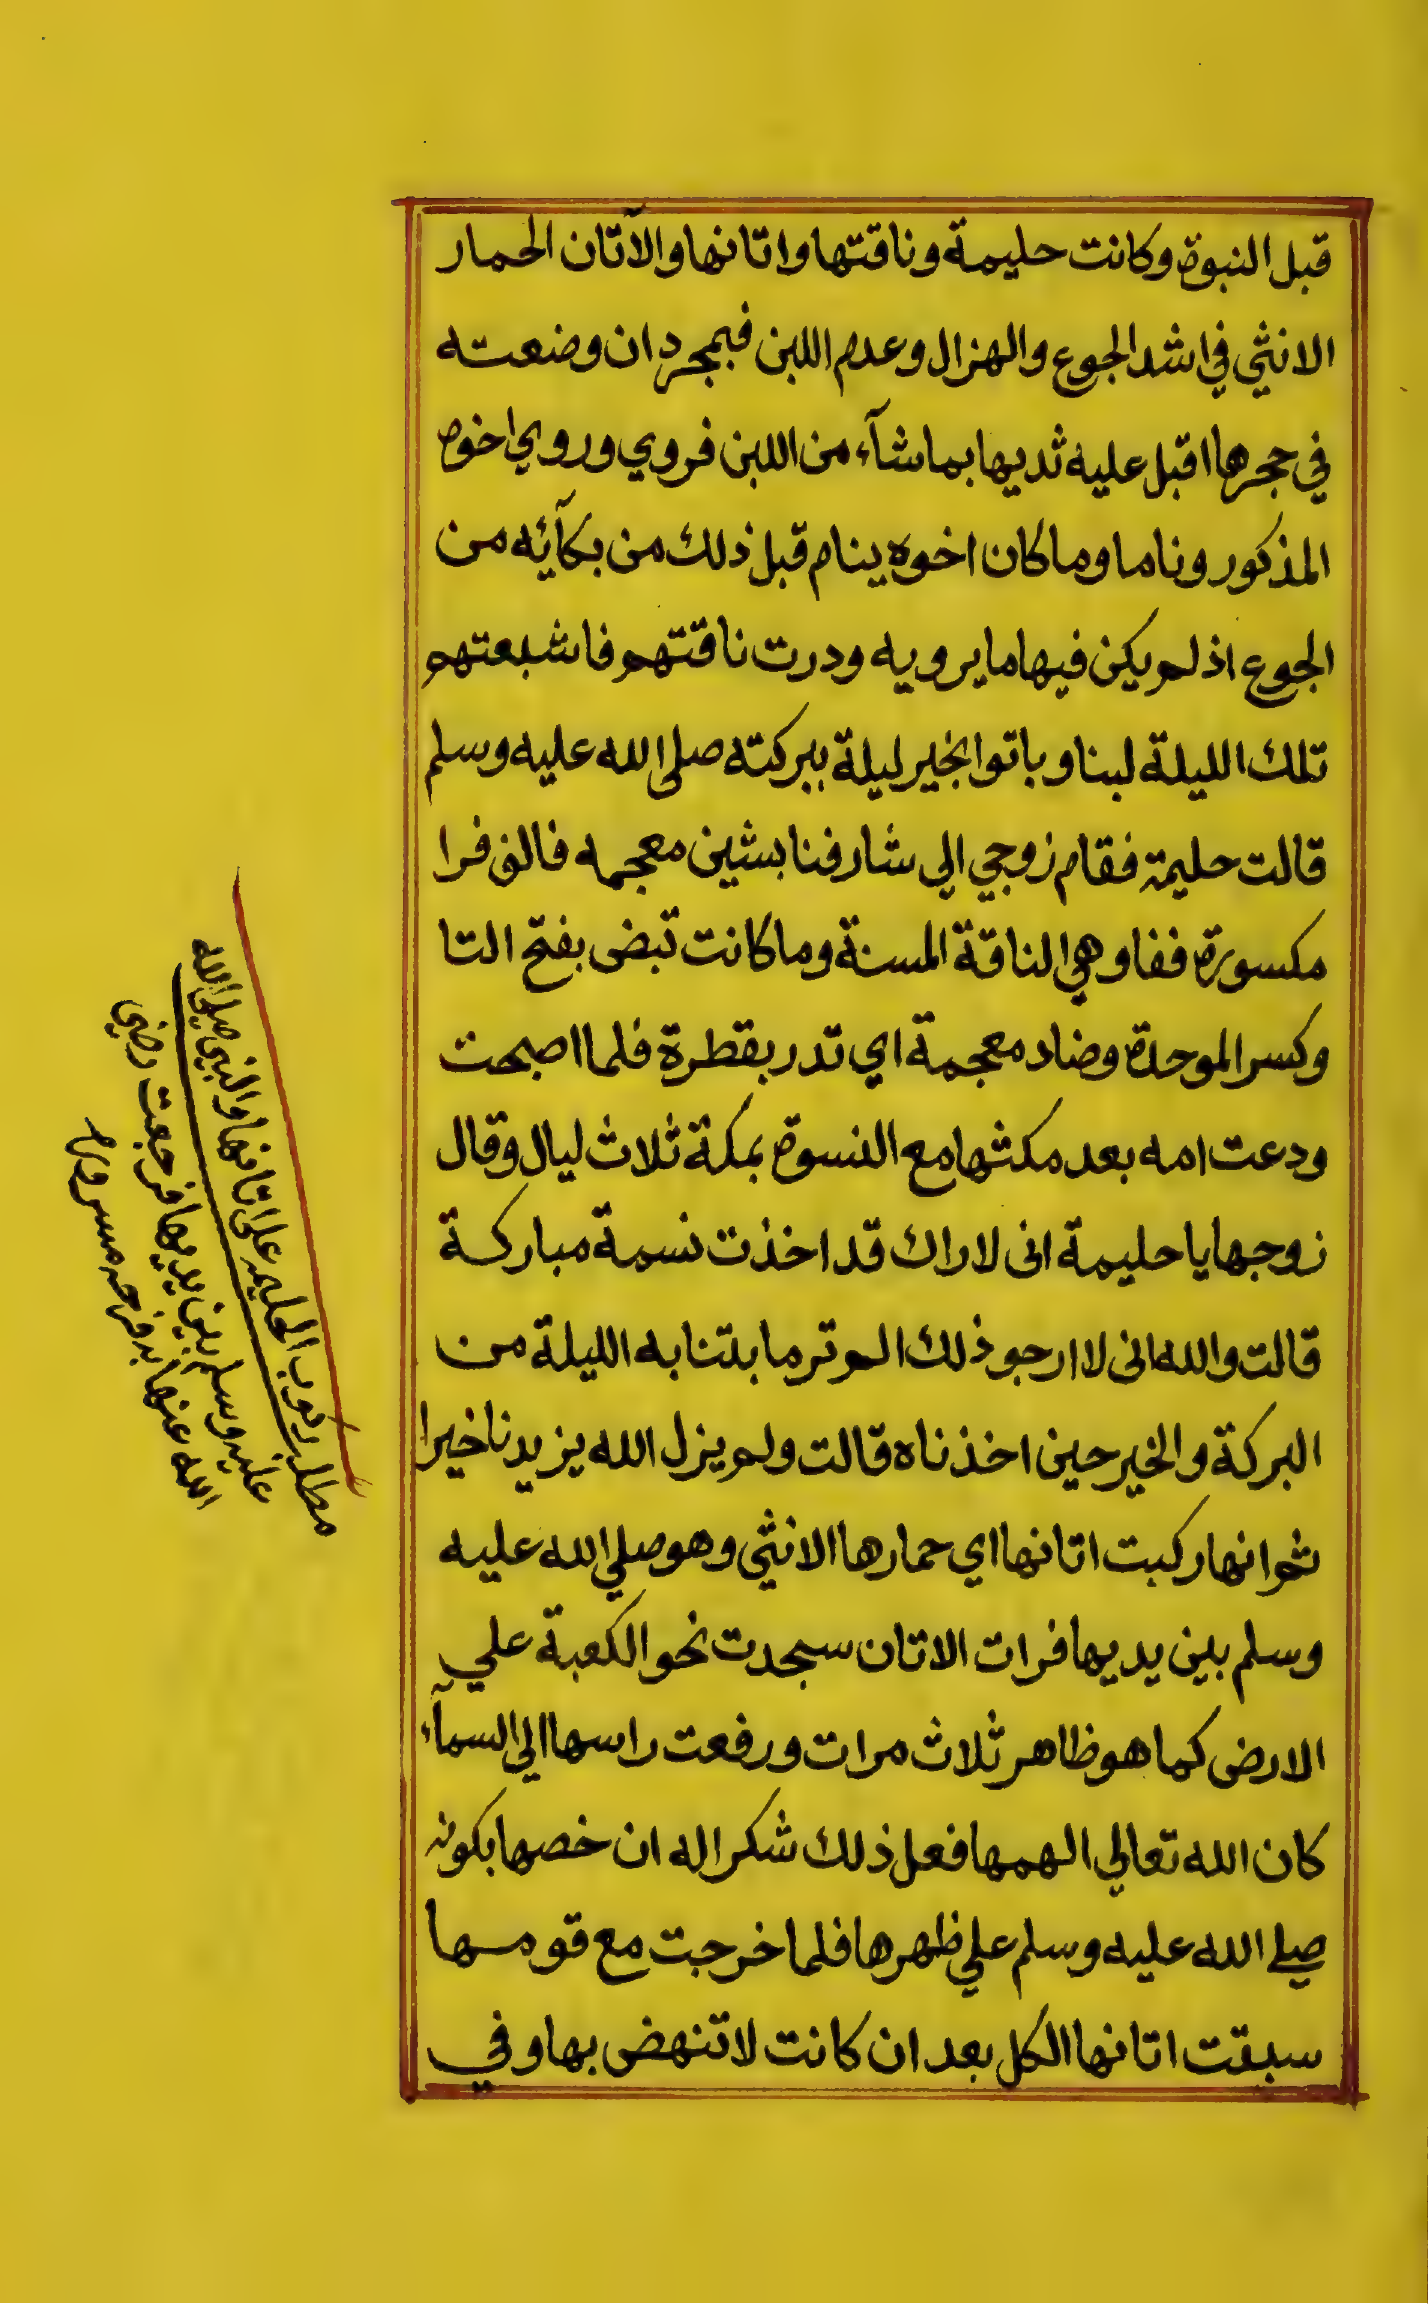 قبل النبوة وكانت حليمة وناقتها واتانها والآتان الحمار
الانثي في اشد الجوع والهزال وعدم اللبن فبمجرد ان وضعته
في حجرها اقبل عليه ثديها بما شآء من اللبن فروي وروي اخوه
المذكور وناما وما كان اخوه ينام قبل ذلك من بكآئه من
الجوع اذ لم يكن فيها ما يرويه ودرت ناقتهم فاشبعتهم
تلك الليلة لبنا وباتوا بخير ليلة ببركته صلى الله عليه وسلم
قالت حليمة فقام زوجي الي شارفنا بشين معجمه فالف فرا
مكسورة ففا وهي الناقة المسنة وما كانت تبض بفتح التا
وكسر الموحدة وضاد معجمة اي تدر بقطرة فلما اصبحت
ودعت امه بعد مكثها مع النسوة بمكة ثلاث ليال وقال
زوجها يا حليمة انى لاراك قد اخذت نسمة مباركة
قالت والله انى لا ارجو ذلك الم تر ما بتنا به الليلة من
البركة والخير حين اخذناه قالت ولم يزل الله يزيدنا خيرا
ثم انها ركبت اتانها اي حمارها الانثي وهو صلي الله عليه
وسلم بين يديها فرات الاتان سجدت نحو الكعبة علي
الارض كما هو ظاهر ثلاث مرات ورفعت راسها الي السمآء
كان الله تعالي الهمها فعل ذلك شكرا له ان خصها بكونه
صلى الله عليه وسلم علي ظهرها فلما خرجت مع قومها
سبقت اتانها الكل بعد ان كانت لا تنهض بها وفي
مطلب ركوب الحليمه على اتانها والنبي صلى الله
عليه وسلم بين يديها فرجعت رضي
الله عنها به فرحه مسروره